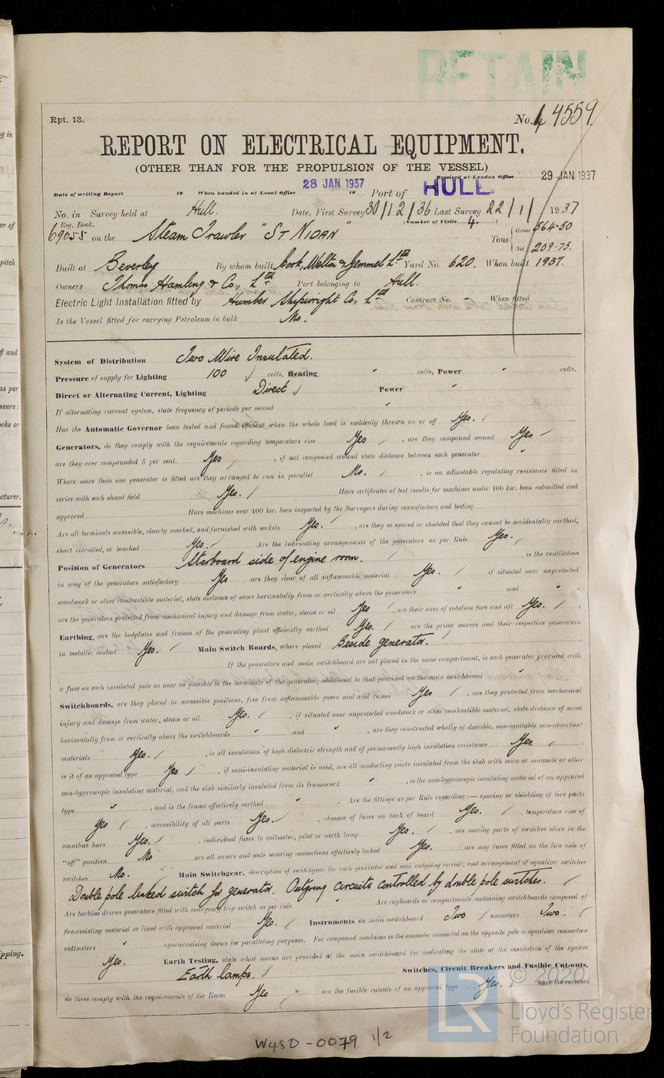 RETAIN
Rpt. 13.
No. 44559.
REPORT ON ELECTRICAL EQUIPMENT.
(OTHER THAN FOR THE PROPULSION OF THE VESSEL)
Received at London Office 29 JAN 1937
Date of writing Report 19 When handed in at Local Office 28 JAN 1937 19 Port of HULL.
No. in Survey held at Hull. Date, First Survey 30/12/36 Last Survey 22/1/1937
Reg. Book. (Number of Visits 4.
69055 on the Steam Trawler "ST NIDAN" Tons Gross 564.50
Net 209.75.
Built at Beverley By whom built Cook, Welton & Gemmel Ltd Yard No. 620. When built 1937.
Owners Thomas Hamling & Co, Ltd Port belonging to Hull.
Electric Light Installation fitted by Humber Shipwright Co, Ltd Contract No. - When fitted
Is the Vessel fitted for carrying Petroleum in bulk No.
System of Distribution Two Wire Insulated.
Pressure of supply for Lighting 100 volts, Heating " volts, Power " volts.
Direct or Alternating Current, Lighting Direct Power "
If alternating current system, state frequency of periods per second
Has the Automatic Governor been tested and found efficient when the whole load is suddenly thrown on or off Yes.
Generators, do they comply with the requirements regarding temperature rise Yes, are they compound wound Yes
are they over compounded 5 per cent. Yes, if not compound wound state distance between each generator "
Where more than one generator is fitted are they arranged to run in parallel No., is an adjustable regulating resistance fitted in
series with each shunt field Yes. Have certificates of test results for machines under 100 kw. been submitted and
approved Have machines over 100 kw. been inspected by the Surveyors during manufacture and testing
Are all terminals accessible, clearly marked, and furnished with sockets Yes., are they so spaced or shielded that they cannot be accidentally earthed,
short circuited, or touched Yes. Are the lubricating arrangements of the generators as per Rule Yes.
Position of Generators Starboard side of engine room. , is the ventilation
in way of the generators satisfactory Yes are they clear of all inflammable material Yes. if situated near unprotected
woodwork or other combustible material, state distance of same horizontally from or vertically above the generators " and "
are the generators protected from mechanical injury and damage from water, steam or oil Yes, are their axes of rotation fore and aft Yes.
Earthing, are the bedplates and frames of the generating plant efficiently earthed Yes. are the prime movers and their respective generators
in metallic contact Yes. Main Switch Boards, where placed Beside generator.
If the generators and main switchboard are not placed in the same compartment, is each generator provided with
a fuse on each insulated pole as near as possible to the terminals of the generator, additional to that provided on the main switchboard "
Switchboards, are they placed in accessible positions, free from inflammable gases and acid fumes Yes, are they protected from mechanical
injury and damage from water, steam or oil Yes., if situated near unprotected woodwork or other combustible material, state distance of same
horizontally from or vertically above the switchboards " and ", are they constructed wholly of durable, non-ignitable non-absorbent
materials Yes., is all insulation of high dielectric strength and of permanently high insulation resistance Yes
is it of an approved type Yes, if semi-insulating material is used, are all conducting parts insulated from the slab with mica or micanite or other
non-hygroscopic insulating material, and the slab similarly insulated from its framework ", is the non-hygroscopic insulating material of an approved
type ", and is the frame effectively earthed Are the fittings as per Rule regarding:— spacing or shielding of live parts
Yes, accessibility of all parts Yes., absence of fuses on back of board Yes., temperature rise of
omnibus bars Yes., individual fuses to voltmeter, pilot or earth lamp Yes., are moving parts of switches alive in the
"off" position No are all screws and nuts securing connections effectively locked Yes. are any fuses fitted on the live side of
switches No. Main Switchgear, description of switchgear for each generator and each outgoing circuit, and arrangement of equalizer switches
Double pole linked switch for generator. Outgoing circuits controlled by double pole switches.
Are turbine driven generators fitted with emergency trip switch as per rule. Are cupboards or compartments containing switchboards composed of
fire-resisting material or lined with approved material Yes. Instruments on main switchboard Two ammeters Two.
voltmeters " synchronising device for paralleling purposes. For compound machines is the ammeter connected on the opposite pole to equaliser connection
Yes. Earth Testing, state what means are provided at the main switchboard for indicating the state of the insulation of the system
Earth lamps. Switches, Circuit Breakers and Fusible Cut-outs,
do these comply with the requirements of the Rules Yes are the fusible cutouts of an approved type Yes. have the reversed
© 2020
LR
Lloyd's Register
Foundation
W450-0079 1/2